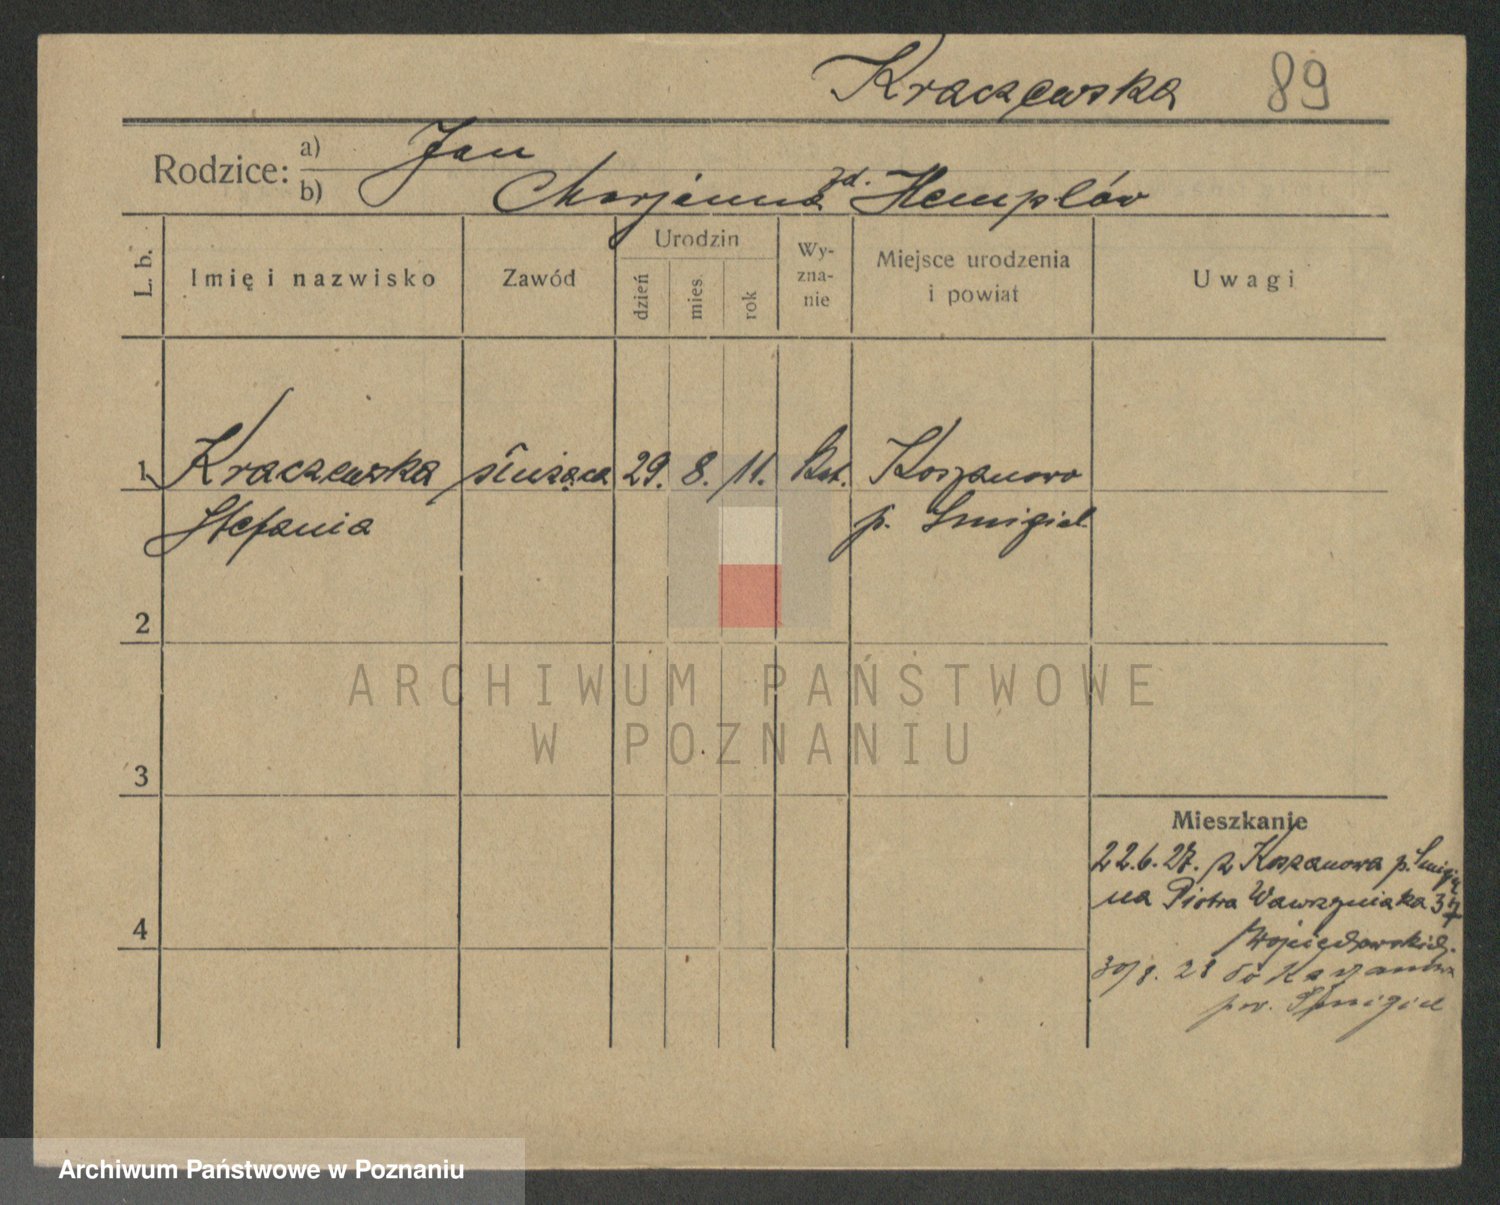 Kraczewska 89
Rodzice: a) Jan
b) Marjanna zd. Hemplów
L. b. Imię i nazwisko Zawód Urodzin dzień mies. rok Wy-zna-nie Miejsce urodzenia i powiat Uwagi
1 Kraczewska służąca 29. 8. 11. kat. Koszanowo
Stefania p. Smigiel
2
3
4
Mieszkanie
22.6.27. z Koszanowa p. Smigiel
na Piotra Wawrzyniaka 37
30/8. 28 do Koszanowa
pow. Smigiel
ARCHIWUM PAŃSTWOWE
W POZNANIU
Archiwum Państwowe w Poznaniu